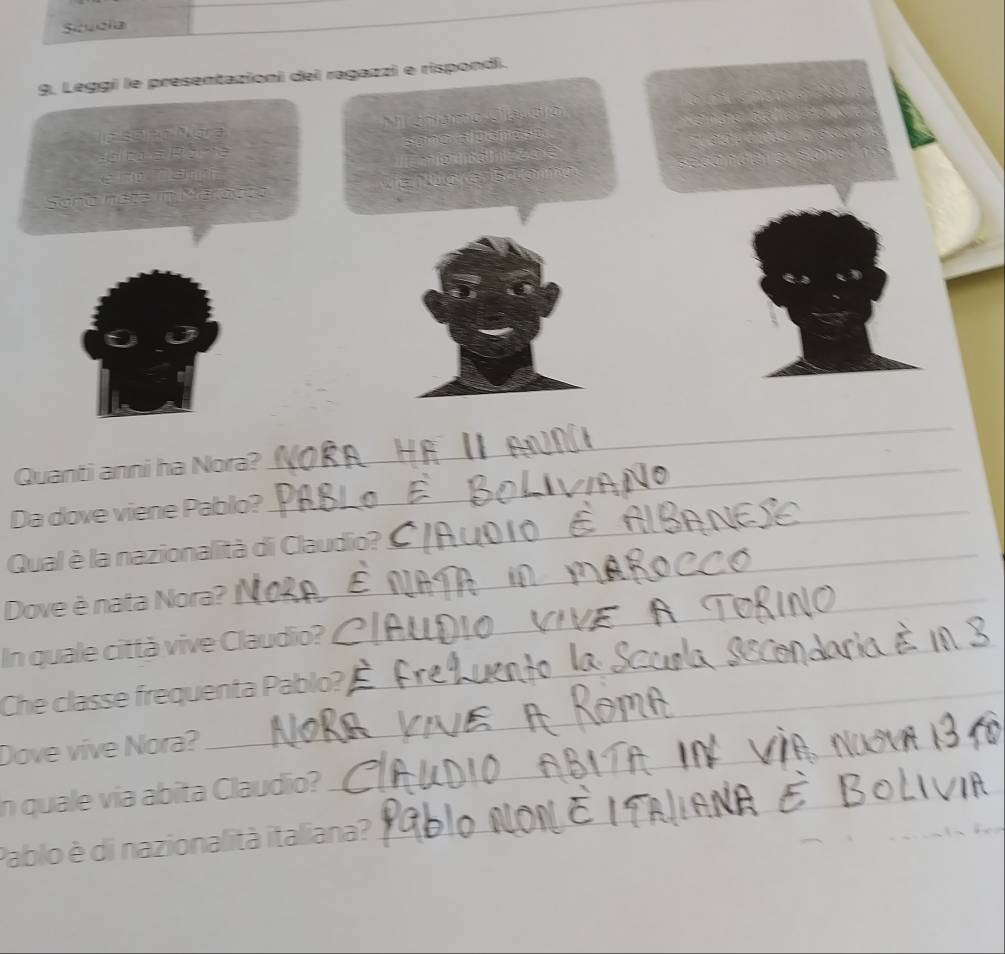 Scuola
9. Leggi le presentazioni dei ragazzi e rispondi.
Io sono Nora
abito a Roma
e ho 11 anni
Sono nata in Marocco
Mi chiamo Claudio
sono albanese
via Nuova, 13, Torino
Quanti anni ha Nora? NORA HA 11 ANNI
Da dove viene Pablo? PABLO È BOLIVIANO
Qual è la nazionalità di Claudio? ClAUDIO È AlBANESE
Dove è nata Nora? NORA È NATA IN MAROCCO
In quale città vive Claudio? ClAUDIO VIVE A TORINO
Che classe frequenta Pablo? È frequento la Scuola secondaria È IN 3
Dove vive Nora? NORA VIVE A ROMA
In quale via abita Claudio? ClAUDIO ABITA IN VIA NUOVA 13 TO
Pablo è di nazionalità italiana? Pablo NON È ITAlIANA È BOLIVIA